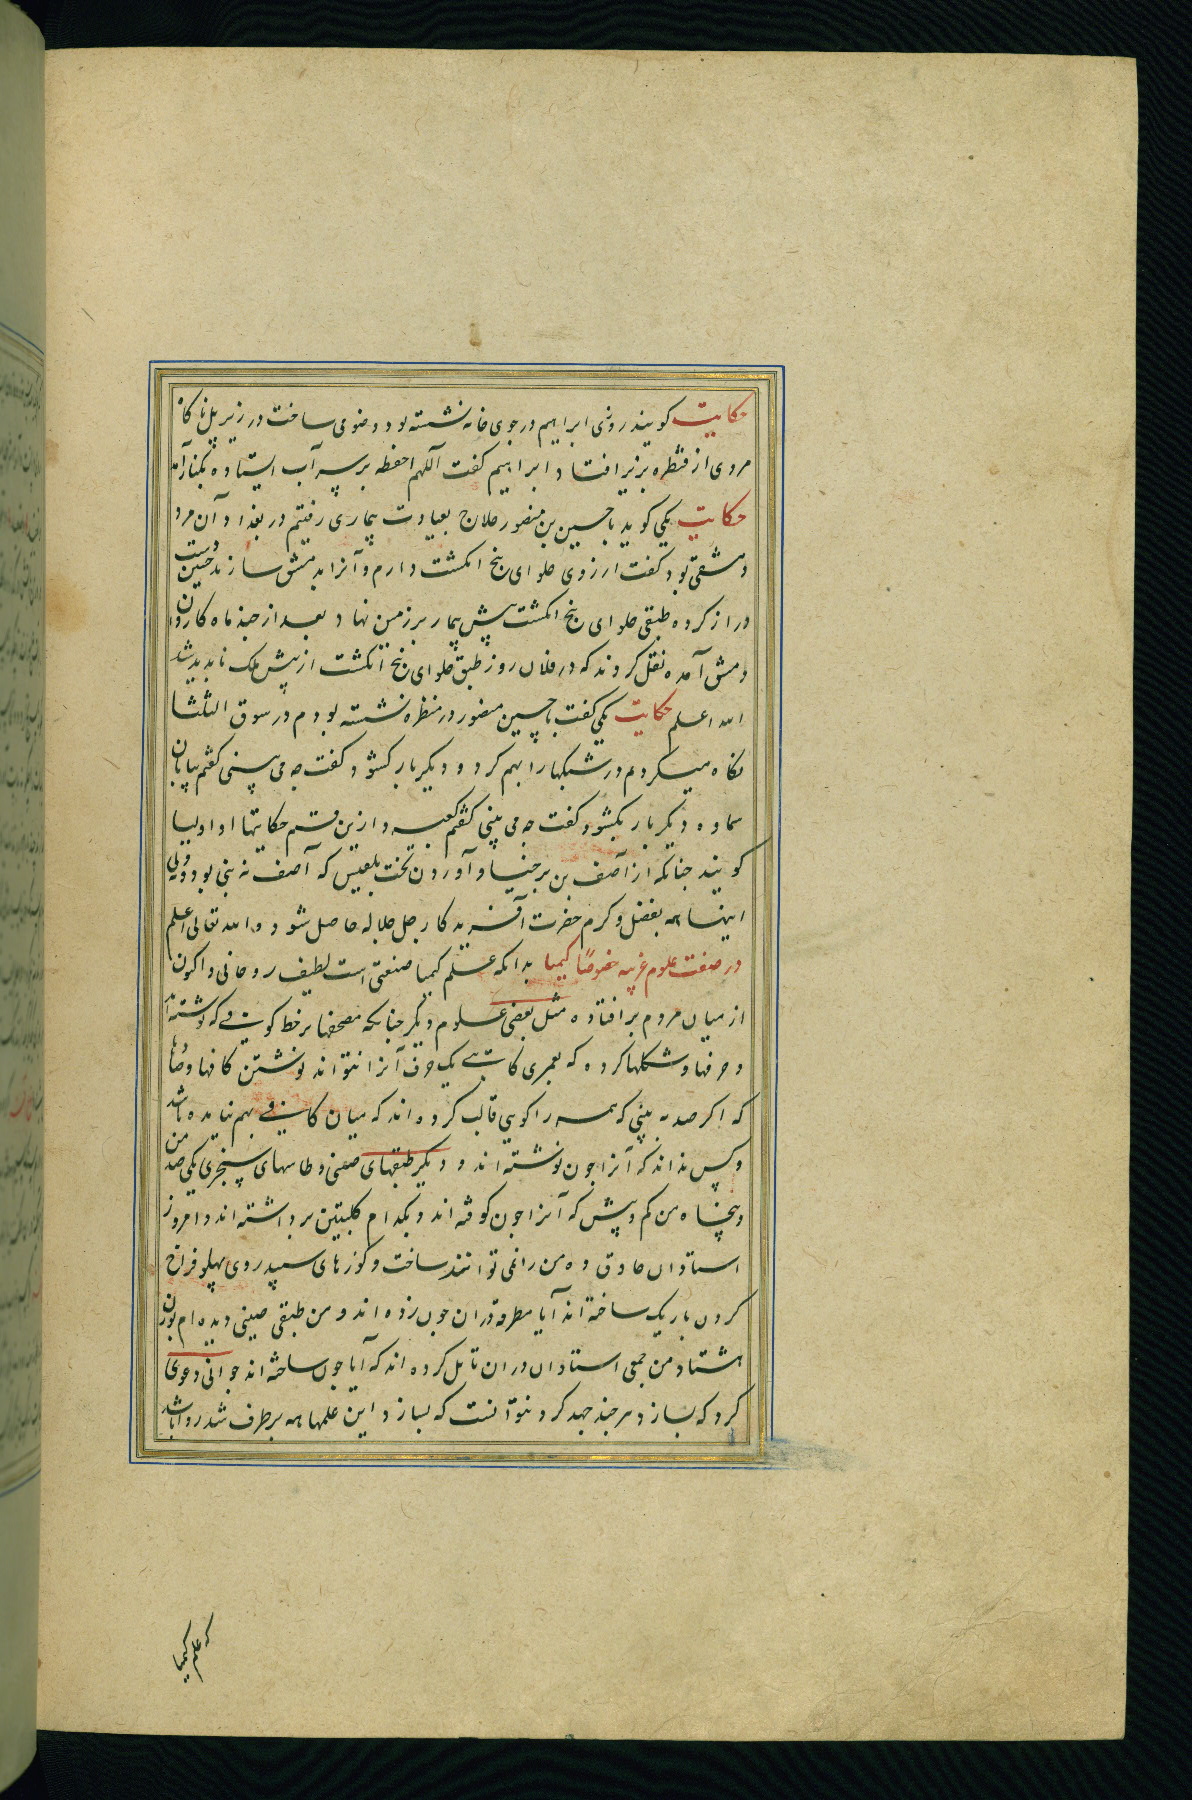 حکایت کویند روزی ابراهیم در جوی خانه نشسته بود و وضو می ساخت در زیر پل ناکاه
مردی از قنطره بزیر افتاد ابراهیم کفت اللهم احفظه بر سر آب ایستاده بکنار آمد
حکایت یکی کوید با حسین بن منصور حلاج بعیادت بیماری رفتیم در بغداد آن مرد
دمشقی بود کفت ارزوی حلوای پنج انکشت دارم و آنرا بدمشق سازند حسین دست
دراز کرده طبقی حلوای پنج انکشت پیش بیمار بر زمین نهاد بعد از چند ماه کاروان
دمشق آمده نقل کردند که در فلان روز طبق حلوای پنج انکشت از پیش ملک ناپدید شد
الله اعلم حکایت یکی کفت با حسین منصور در منظره نشسته بودم در سوق الثلثا
نکاه میکردم در شبکها را بهم کرد و دیکر بار کشود کفت چه می بینی کفتم بیابان
سماوه دیکر بار بکشود کفت چه می بینی کفتم کعبه و ازین قسم حکایتها از اولیا
کویند چنانکه از آصف بن برخیا و آوردن تخت بلقیس که آصف نه نبی بود و ولی
اینها همه بفضل و کرم حضرت آفریدکار جل جلاله حاصل شود والله تعالی اعلم
در صفت علوم غریبه خصوصًا کیمیا بدانکه علم کیمیا صنعتی است لطیف روحانی و اکنون
از میان مردم برافتاده مثل بعضی علوم دیکر چنانکه مصحفها بر خط کوفی که نوشته اند
و حرفها و شکلها کرده که بعمری کاتبی یک حرف آنرا نتواند نوشتن کافها و صادها
که اکر صد بینی که همه را کویی قالب کرده اند که میان کافی بهم نیامده باشد
و کس نداند که آنرا چون نوشته اند و دیکر طبقهای صینی و طاسهای سنجری یکی صد من
و پنجاه من کم و بیش که آنرا چون کوفته اند و بکدام کلبتین برداشته اند و امروز
استادان حاذق ده من را نمی توانند ساخت و کوزهای سپید روی پهلو فراخ
کردن باریک ساخته اند آیا مطرقه در آن چون زده اند و من طبقی صینی دیده ام بوزن
هشتاد من جمعی استادان در آن تامل کرده اند که آیا چون ساخته اند جوانی دعوی
کرد که بسازد هر چند جهد کرد نتوانست که بسازد این علمها همه بر طرف شد روا باشد
که علم کیمیا